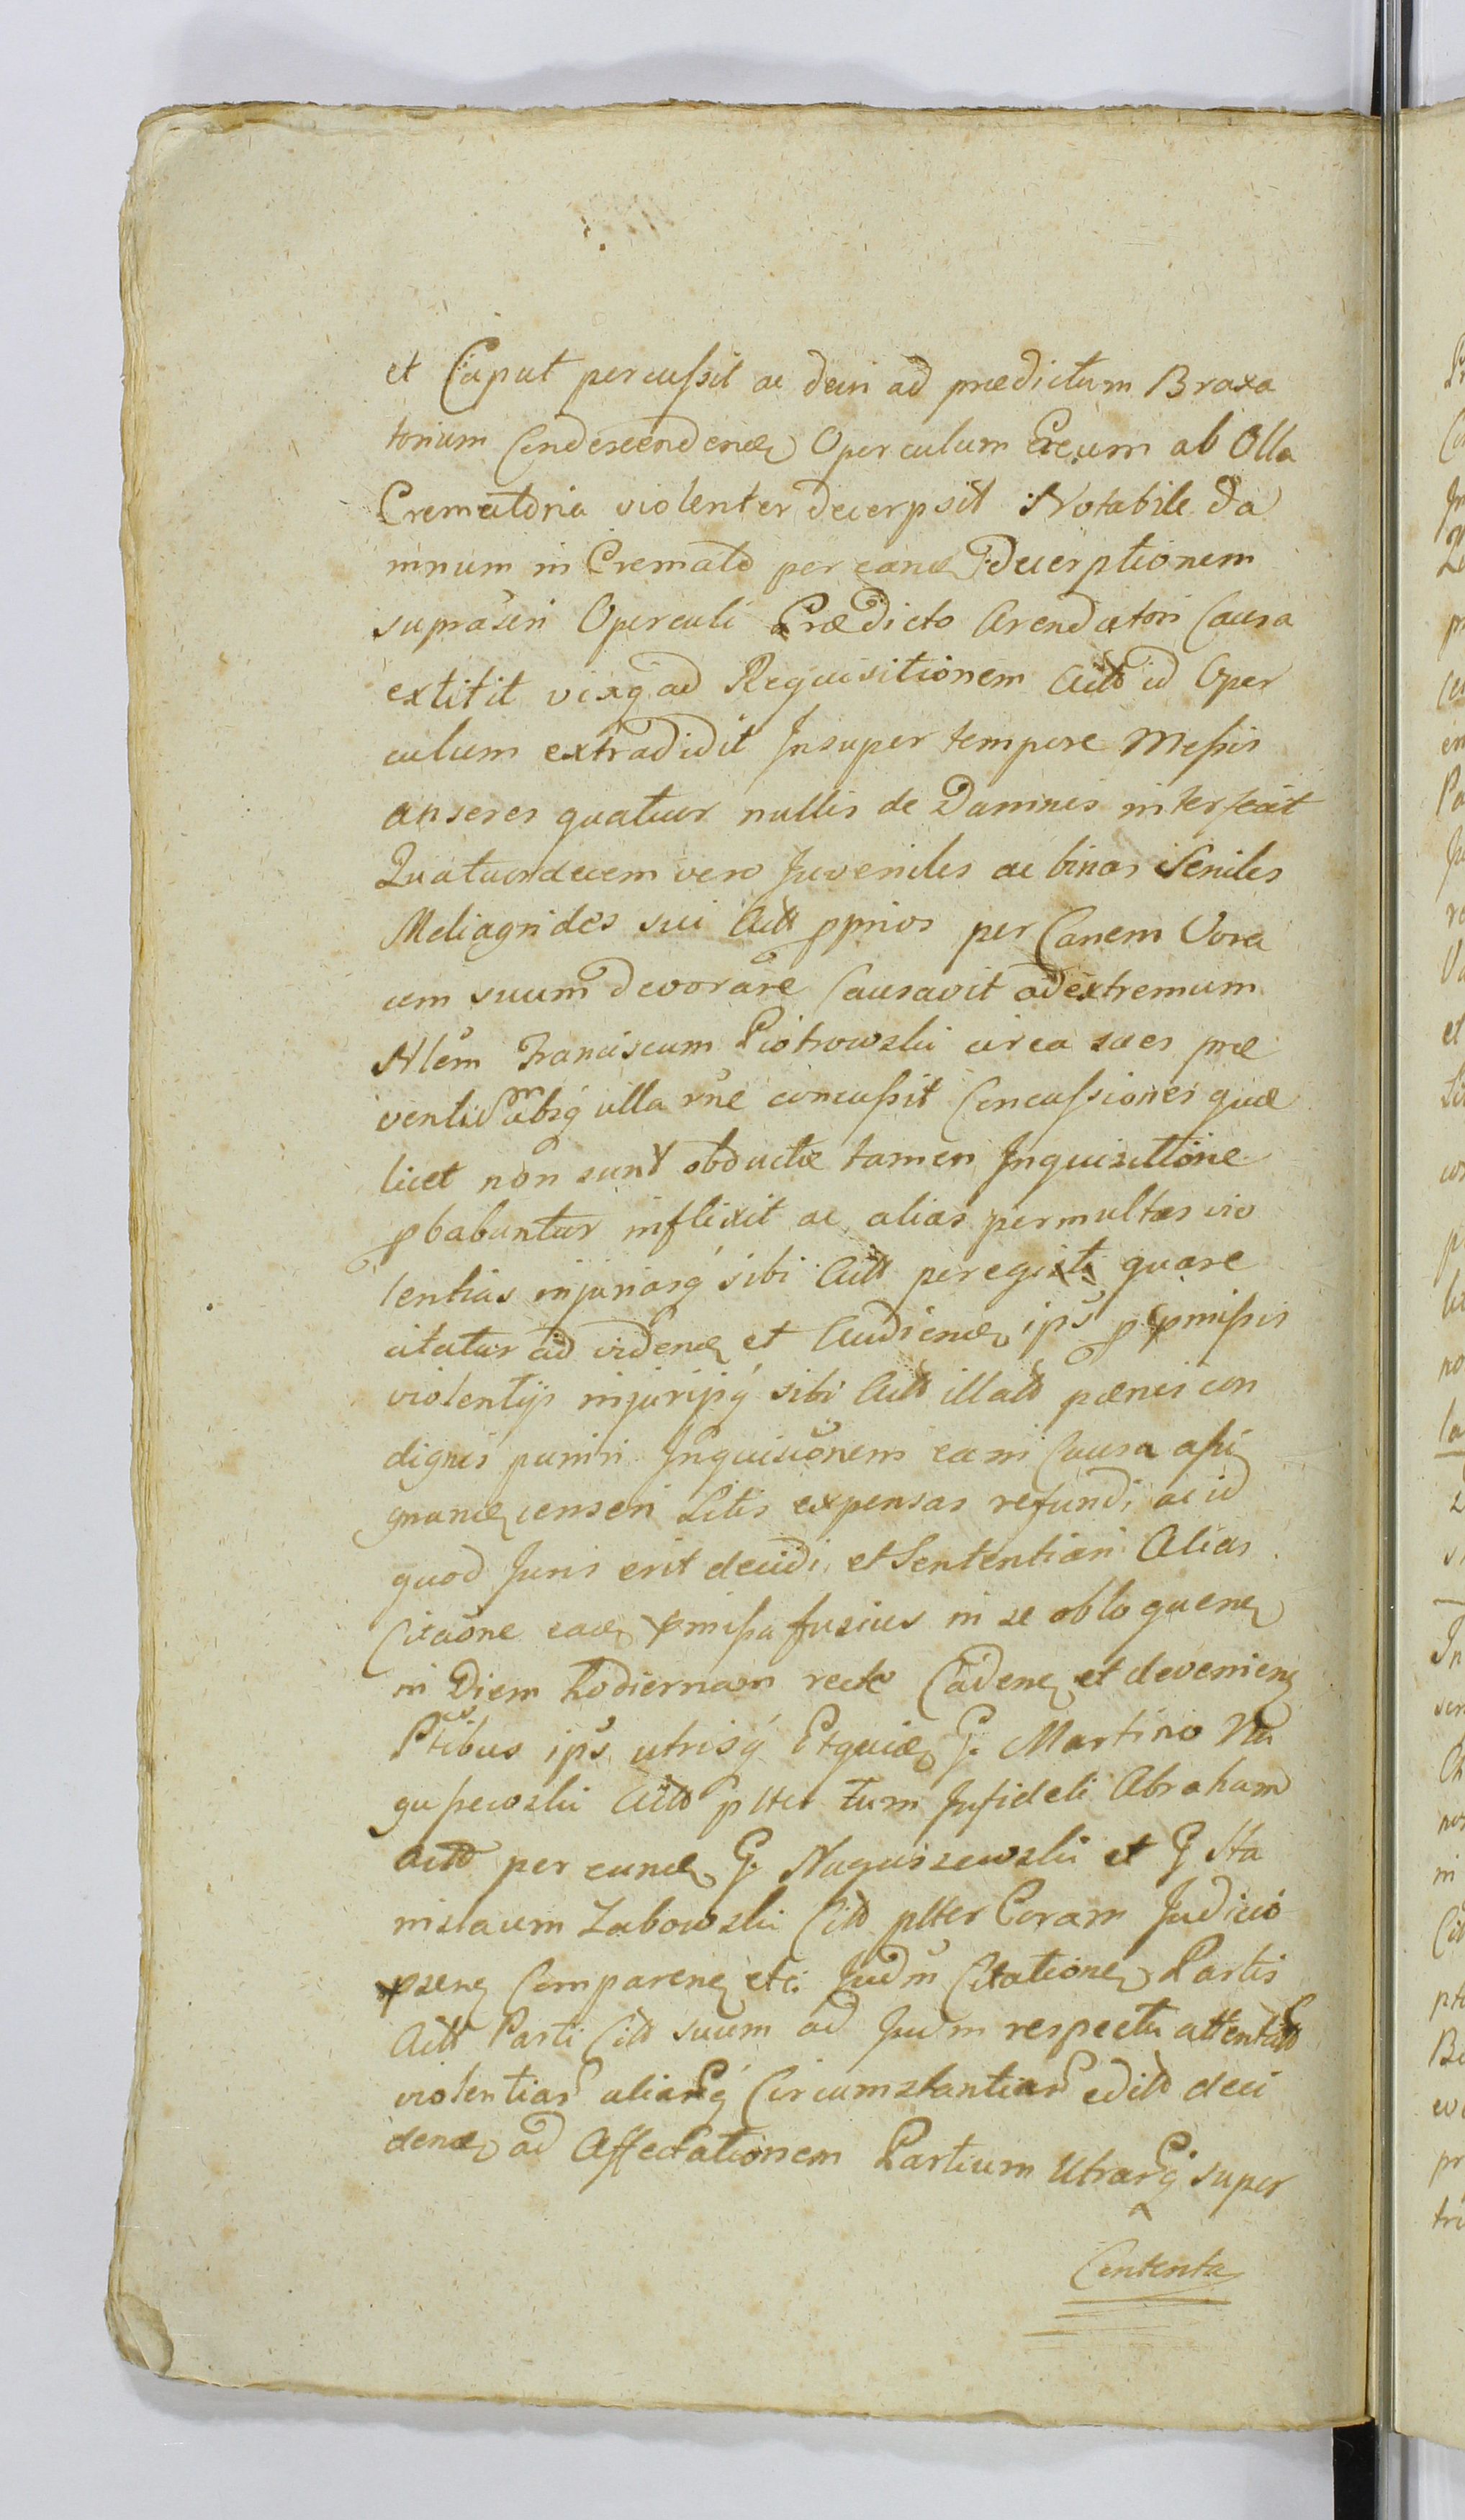 et Caput percussit ac dein ad praedictum Braxa
torium Condescendendendo Operculum Ereum ab Olla
Crematoria violenter decerpsit Notabile da
mnum in Cremato per eand decerptionem
suprascri Operculi Praedicto Arendatori Causa
extitit vixq ad Requisitionem Actt id Oper
culum extradidit Insuper tempore Messis
anseres quatuor nullis de Damnis interfecit
Quatuordecem vero Juveniles ac binas Seniles
Meliagrides sui Actt pprios per Canem Vora
cem suum devorare Causavit ad extremum
Nlem Franciscum Piotrowski circa sues prae
absq ulla rne concussit Concussiones quae
licet non sunt obductae tamen Inquisitione
pbabuntur inflixit ac alias permultas vio
lentias injuriasq sibi Actt quare
citatur ad vidend et Audiend ips p pmissis
violentijs injurijsq sibi Actt illatt paenis con
dignis puniri Inquisitionem eam in Causa assi
gnand censeri Litis expensas refundi ac id
quod Juris erit decidi et Sententiari Alias
Citaone ead pmissa fusius in se obloquen
in Diem hodiernam recte Caden et devenien
Ptibus ips utrisq Etquid G. Martino Na
guszewski Actt pltter tum Infideli Abraham
Actt per eund G. Naguszewski et G Sta
nislaum Zabowski Citt pltter Coram Judicio
psen Comparen etc. Judm Citatione Partis
Actt Parti Citt suum ad Judm respectu attentatt
violentiar aliarq Circumstantiar editt deci
dend ad Affectationem Partium Utrarq super
Contenta